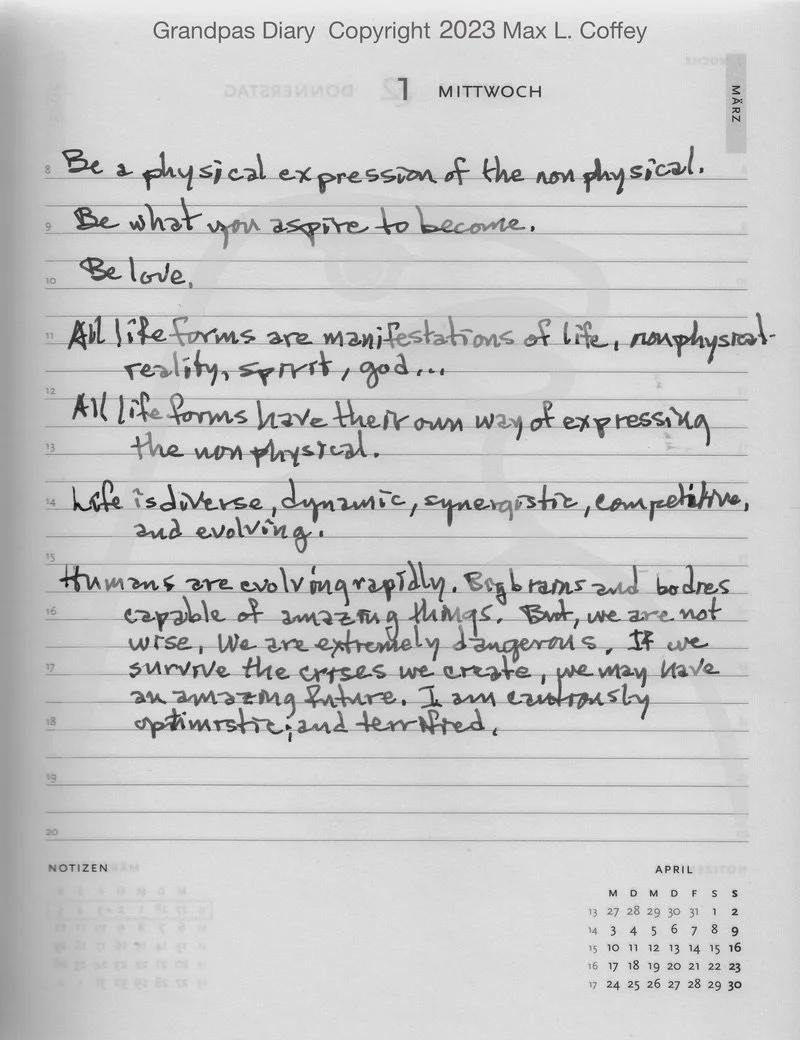 Grandpas Diary Copyright 2023 Max L. Coffey
1 MITTWOCH
MÄRZ
8 Be a physical expression of the non physical.
9 Be what you aspire to become.
10 Be love.
11 All life forms are manifestations of life, nonphysical-
reality, spirit, god...
12
All life forms have their own way of expressing
13 the non physical.
14 Life is diverse, dynamic, synergistic, competitive,
and evolving.
15
Humans are evolving rapidly. Big brains and bodies
16 capable of amazing things. But, we are not
wise. We are extremely dangerous. If we
17 survive the crises we create, we may have
an amazing future. I am cautiously
18 optimistic; and terrified.
19
20
NOTIZEN
APRIL
M D M D F S S
13 27 28 29 30 31 1 2
14 3 4 5 6 7 8 9
15 10 11 12 13 14 15 16
16 17 18 19 20 21 22 23
17 24 25 26 27 28 29 30